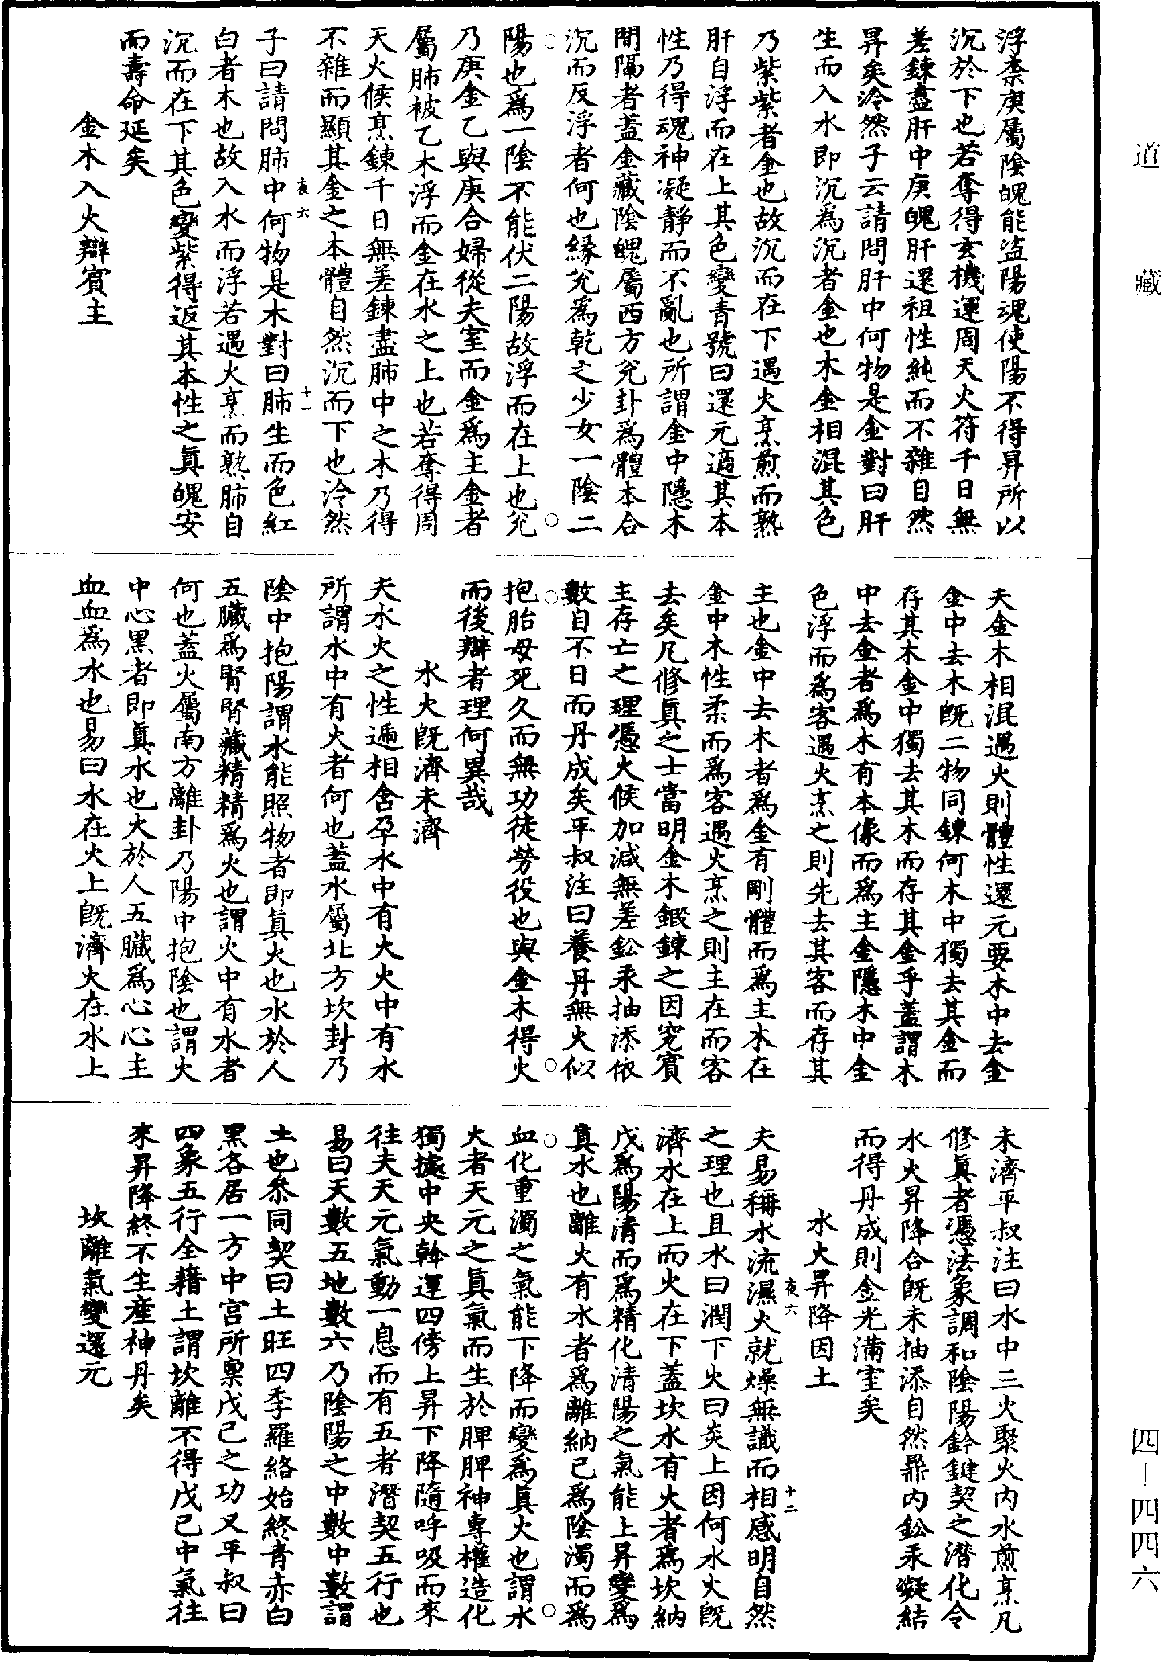 道藏
四一四四六
浮稟庚屬陰魄能盜陽魂使陽不得昇所以
沉於下也若奪得玄機運周天火符千日無
差鍊盡肝中庚魄肝還祖性純而不雜自然
昇矣泠然子云請問肝中何物是金對曰肝
生而入水即沉為沉者金也木金相混其色
乃紫紫者金也故沉而在下遇火烹煎而熟
肝自浮而在上其色變青號曰還元適其本
性乃得魂神凝靜而不亂也所謂金中隱木
間隔者蓋金藏陰魄屬西方兌卦為體本合
沉而反浮者何也緣兌為乾之少女一陰二
陽也為一陰不能伏二陽故浮而在上也兌
乃庚金乙與庚合婦從夫室而金為主金者
屬肺被乙木浮而金在水之上也若奪得周
天火候烹鍊千日無差鍊盡肺中之木乃得
不雜而顯其金之本體自然沉而下也泠然
夜六
十一
子曰請問肺中何物是木對曰肺生而色紅
白者木也故入水而浮若遇火烹而熟肺自
沉而在下其色變紫得返其本性之真魄安
而壽命延矣
金木入火辯賓主
夫金木相混遇火則體性還元要木中去金
金中去木既二物同鍊何木中獨去其金而
存其木金中獨去其木而存其金乎蓋謂木
中去金者為木有本像而為主金隱木中金
色浮而為客遇火烹之則先去其客而存其
主也金中去木者為金有剛體而為主木在
金中木性柔而為客遇火烹之則主在而客
去矣凡修真之士當明金木鍛鍊之因究賓
主存亡之理憑火候加減無差鈆汞抽添依
數自不日而丹成矣平叔注曰養丹無火似
抱胎母死久而無功徒勞役也與金木得火
而後辯者理何異哉
水火既濟未濟
夫水火之性遞相含孕水中有火火中有水
所謂水中有火者何也蓋水屬北方坎卦乃
陰中抱陽謂水能照物者即真火也水於人
五臟為腎腎藏精精為火也謂火中有水者
何也蓋火屬南方離卦乃陽中抱陰也謂火
中心黑者即真水也火於人五臟為心心主
血血為水也易曰水在火上既濟火在水上
未濟平叔注曰水中三火聚火內水煎烹凡
修真者憑法象調和陰陽鈐鍵契之潛化令
水火昇降合既未抽添自然鼎內鈆汞凝結
而得丹成則金光滿室矣
水火昇降因土
夜六
十二
夫易稱水流濕火就燥無識而相感明自然
之理也且水曰潤下火曰炎上因何水火既
濟水在上而火在下蓋坎水有火者為坎納
戊為陽清而為精化清陽之氣能上昇變為
真水也離火有水者為離納己為陰濁而為
血化重濁之氣能下降而變為真火也謂水
火者天元之真氣而生於脾脾神專權造化
獨據中央斡運四傍上昇下降隨呼吸而來
往夫天元氣動一息而有五者潛契五行也
易曰天數五地數六乃陰陽之中數中數謂
土也叅同契曰土旺四季羅絡始終青赤白
黑各居一方中宮所稟戊己之功又平叔曰
四象五行全籍土謂坎離不得戊己中氣往
來昇降終不生產神丹矣
坎離氣變還元